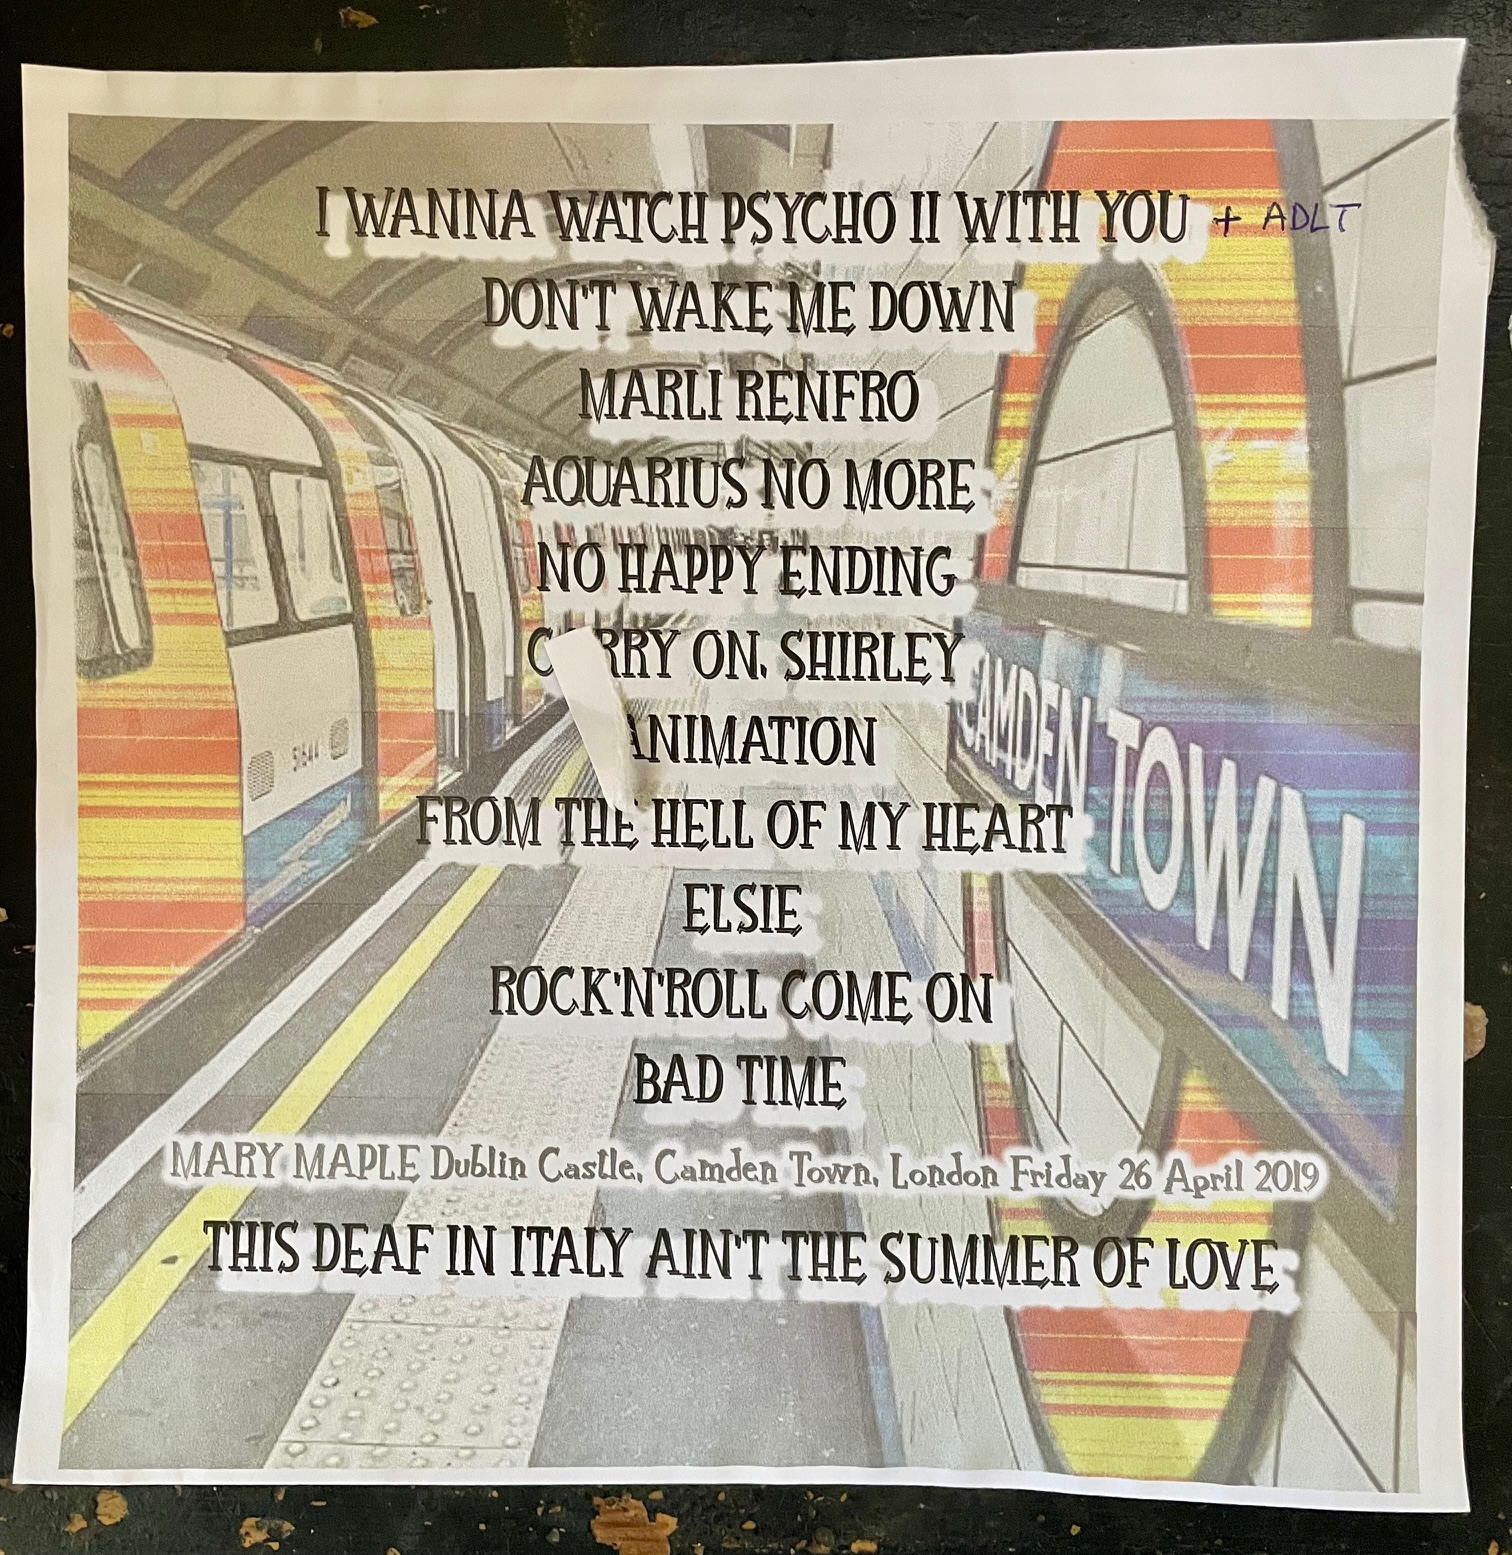 I WANNA WATCH PSYCHO II WITH YOU + ADLT
DON'T WAKE ME DOWN
MARLI RENFRO
AQUARIUS NO MORE
NO HAPPY ENDING
CARRY ON, SHIRLEY
ANIMATION
FROM THE HELL OF MY HEART
ELSIE
ROCK'N'ROLL COME ON
BAD TIME
MARY MAPLE Dublin Castle, Camden Town, London Friday 26 April 2019
THIS DEAF IN ITALY AIN'T THE SUMMER OF LOVE
CAMDEN TOWN